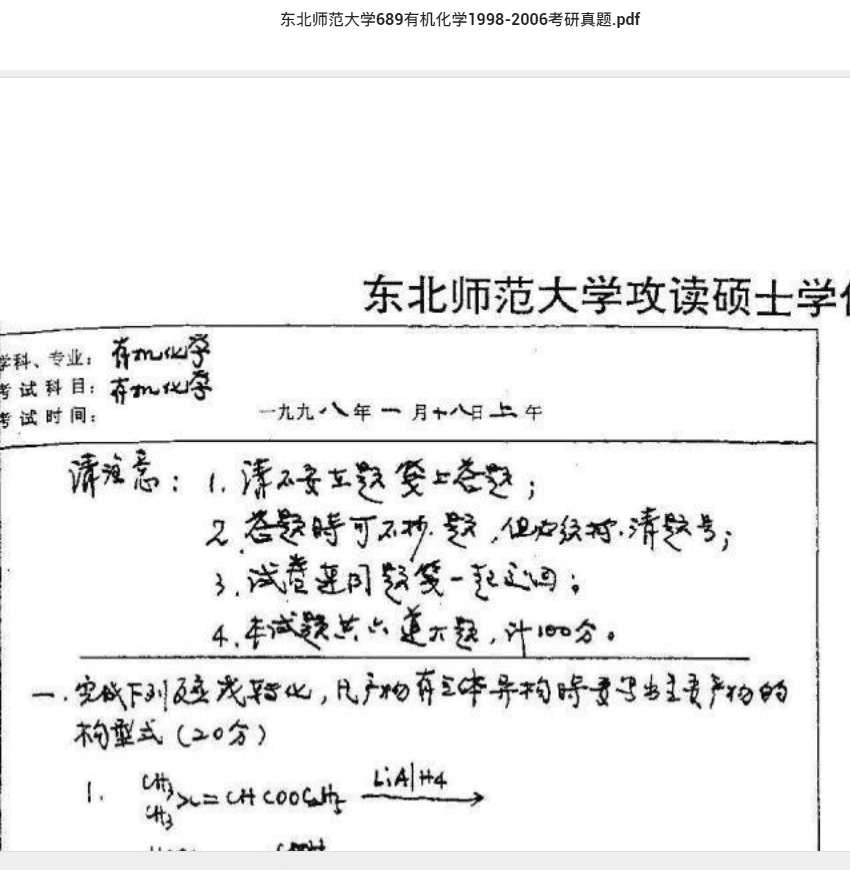 东北师范大学689有机化学1998-2006考研真题.pdf
东北师范大学攻读硕士学
学科、专业：有机化学
考试科目：有机化学
考试时间：一九九八年一月十八日上午
请注意：1. 请不要在题签上答题；
2. 答题时可不抄题，但必须抄清题号；
3. 试卷连同题签一起交回；
4. 本试题共六道大题，计100分。
一. 完成下列反应或转化，凡产物有立体异构时要写出主要产物的
构型式（20分）
1. CH3 CH3 >C=CHCOOC2H5 LiAlH4